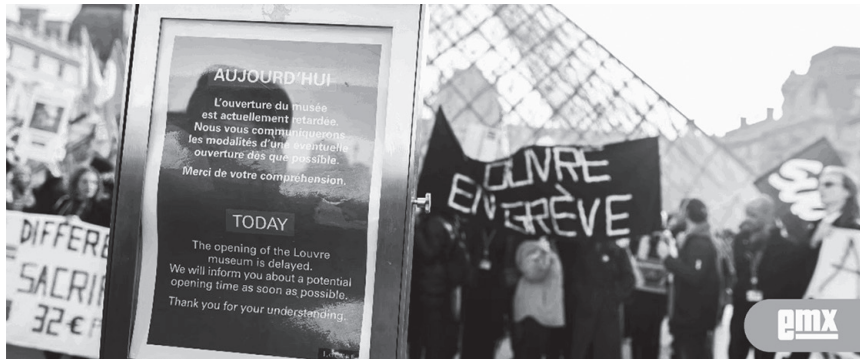 AUJOURD'HUI
L'ouverture du musée
est actuellement retardée.
Nous vous communiquerons
les modalités d'une éventuelle
ouverture dès que possible.
Merci de votre compréhension.
TODAY
The opening of the Louvre
museum is delayed.
We will inform you about a potential
opening time as soon as possible.
Thank you for your understanding.
OUVRE
EN GRÈVE
DIFFERE
SACRI
32€
emx